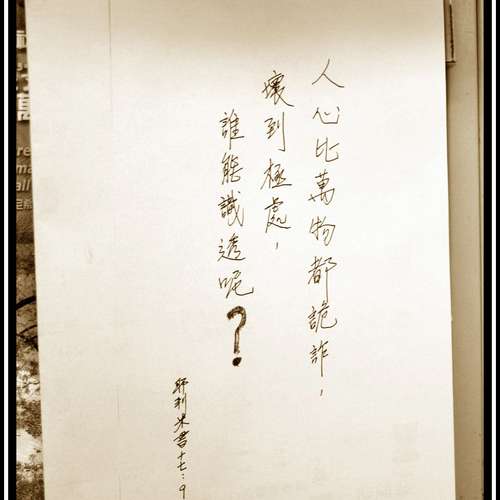 人心比萬物都詭詐，
壞到極處，
誰能識透呢？
耶利米書十七：9